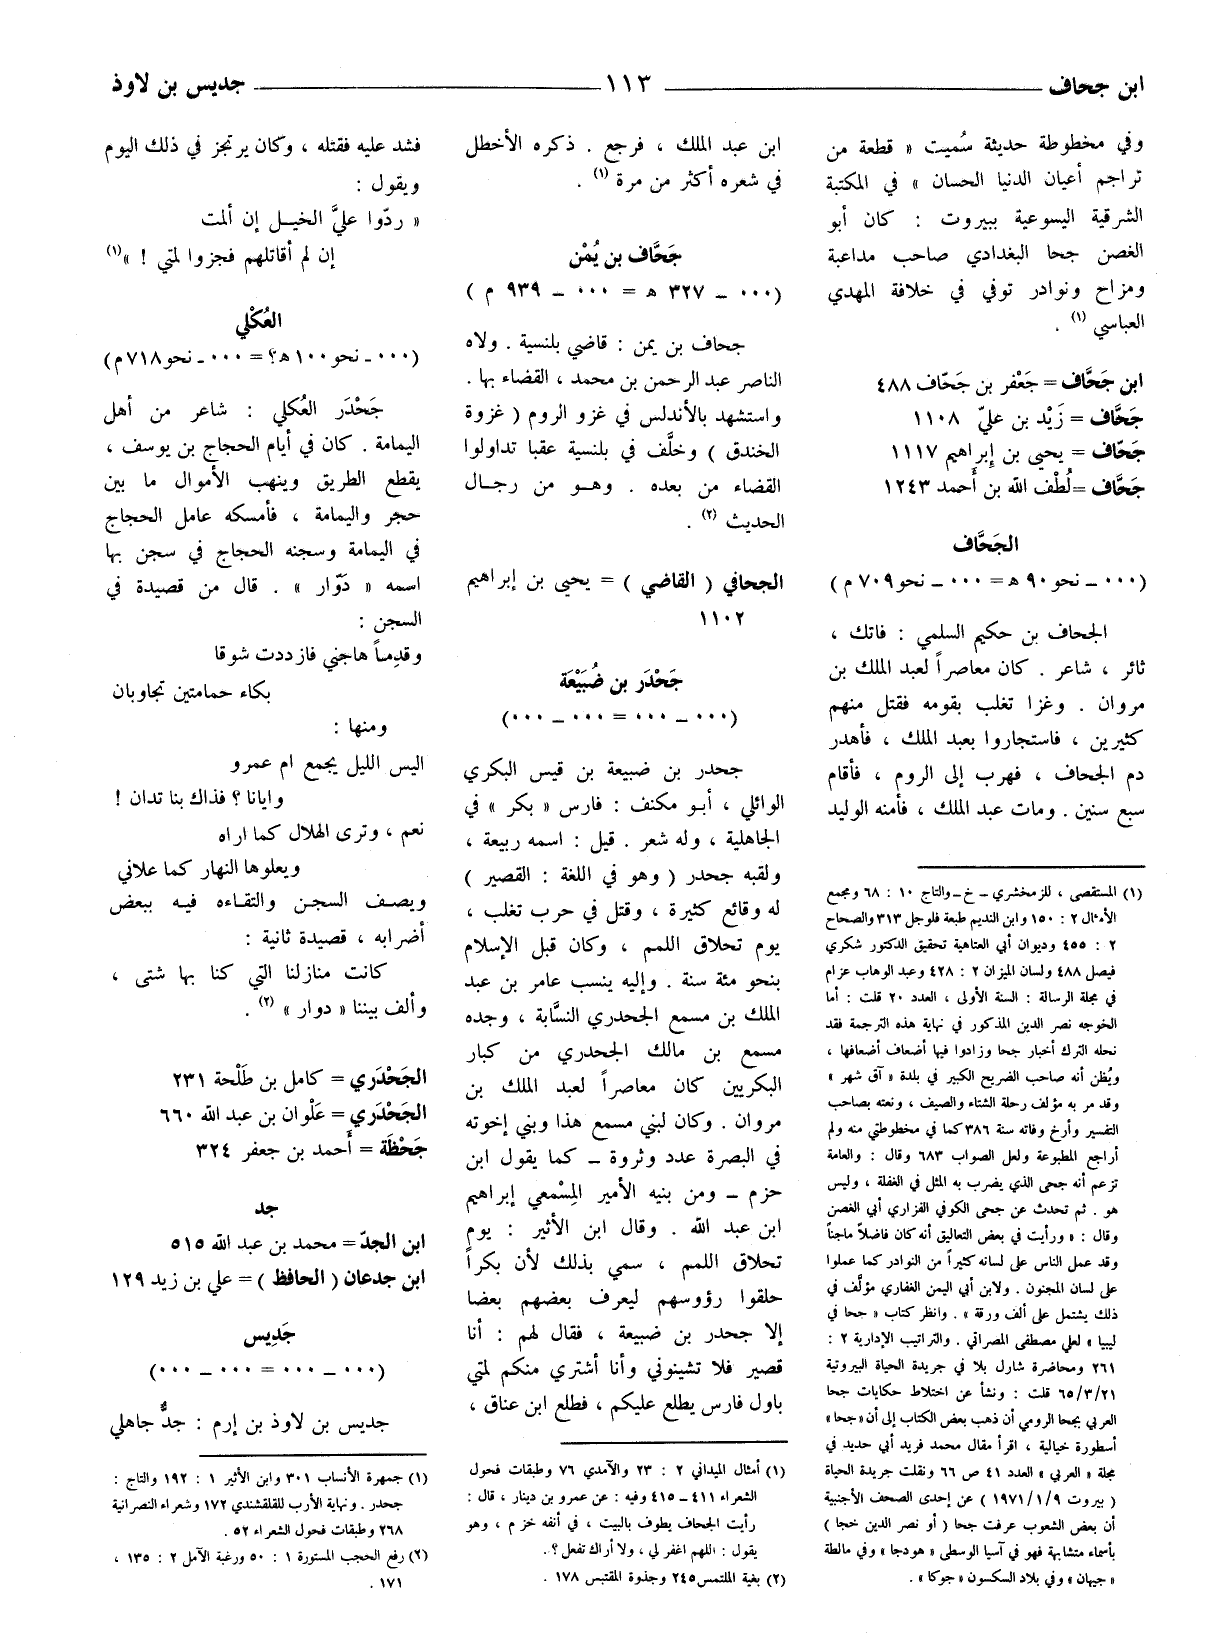 ابن جحاف ــــــ ١١٣ ــــــ جديس بن لاوذ
وفي مخطوطة حديثة سُميت « قطعة من
تراجم أعيان الدنيا الحسان » في المكتبة
الشرقية اليسوعية ببيروت : كان أبو
الغصن جحا البغدادي صاحب مداعبة
ومزاح ونوادر توفي في خلافة المهدي
العباسي (١) .
ابن جَحَّاف = جَعْفر بن جَحّاف ٤٨٨
جَحَّاف = زَيْد بن عليّ ١١٠٨
جَحّاف = يحيى بن إبراهيم ١١١٧
جَحَّاف = لُطْف الله بن أحمد ١٢٤٣
الجَحَّاف
(٠٠٠ ــ نحو ٩٠ هـ = ٠٠٠ ــ نحو ٧٠٩ م )
الجحاف بن حكيم السلمي : فاتك ،
ثائر ، شاعر . كان معاصراً لعبد الملك بن
مروان . وغزا تغلب بقومه فقتل منهم
كثيرين ، فاستجاروا بعبد الملك ، فأهدر
دم الجحاف ، فهرب إلى الروم ، فأقام
سبع سنين . ومات عبد الملك ، فأمنه الوليد
(١) المستقصى ، للزمخشري ــ خ ــ والتاج ١٠ : ٦٨ ومجمع
الأمثال ٢ : ١٥٠ وابن النديم طبعة فلوجل ٣١٣ والصحاح
٢ : ٤٥٥ وديوان أبي العتاهية تحقيق الدكتور شكري
فيصل ٤٨٨ ولسان الميزان ٢ : ٤٢٨ وعبد الوهاب عزام
في مجلة الرسالة : السنة الأولى ، العدد ٢٠ قلت : أما
الخوجه نصر الدين المذكور في نهاية هذه الترجمة فقد
نحله الترك أخبار جحا وزادوا فيها أضعاف أضعافها ،
ويُظن أنه صاحب الضريح الكبير في بلدة « آق شهر »
وقد مر به مؤلف رحلة الشتاء والصيف ، ونعته بصاحب
التفسير وأرخ وفاته سنة ٣٨٦ كما في مخطوطتي منه ولم
أراجع المطبوعة ولعل الصواب ٦٨٣ وقال : والعامة
تزعم أنه جحى الذي يضرب به المثل في الغفلة ، وليس
هو . ثم تحدث عن جحى الكوفي الفزاري أبي الغصن
وقال : « ورأيت في بعض التعاليق أنه كان فاضلاً ماجناً
وقد عمل الناس على لسانه كثيراً من النوادر كما عملوا
على لسان المجنون . ولابن أبي اليمن الغفاري مؤلَّف في
ذلك يشتمل على ألف ورقة » . وانظر كتاب « جحا في
ليبيا » لعلي مصطفى المصراتي . والتراتيب الإدارية ٢ :
٢٦١ ومحاضرة شارل بلا في جريدة الحياة البيروتية
٦٥/٣/٢١ قلت : ونشأ عن اختلاط حكايات جحا
العربي بجحا الرومي أن ذهب بعض الكتاب إلى أن « جحا »
أسطورة خيالية ، اقرأ مقال محمد فريد أبي حديد في
مجلة « العربي » العدد ٤١ ص ٦٦ ونقلت جريدة الحياة
( بيروت ١٩٧١/١/٩ ) عن إحدى الصحف الأجنبية
أن بعض الشعوب عرفت جحا ( أو نصر الدين خجا )
بأسماء متشابهة فهو في آسيا الوسطى « هودجا » وفي مالطة
« جيهان » وفي بلاد السكسون « جوكا » .
ابن عبد الملك ، فرجع . ذكره الأخطل
في شعره أكثر من مرة (١) .
جَحَّاف بن يُمْن
(٠٠٠ ــ ٣٢٧ هـ = ٠٠٠ ــ ٩٣٩ م )
جحاف بن يمن : قاضي بلنسية . ولاه
الناصر عبد الرحمن بن محمد ، القضاء بها .
واستشهد بالأندلس في غزو الروم ( غزوة
الخندق ) وخلَّف في بلنسية عقبا تداولوا
القضاء من بعده . وهو من رجال
الحديث (٢) .
الجحافي ( القاضي ) = يحيى بن إبراهيم
١١٠٢
جَحْدَر بن ضُبَيْعَة
(٠٠٠ ــ ٠٠٠ = ٠٠٠ ــ ٠٠٠)
جحدر بن ضبيعة بن قيس البكري
الوائلي ، أبو مكنف : فارس « بكر » في
الجاهلية ، وله شعر . قيل : اسمه ربيعة ،
ولقبه جحدر ( وهو في اللغة : القصير )
له وقائع كثيرة ، وقتل في حرب تغلب ،
يوم تحلاق اللمم ، وكان قبل الإسلام
بنحو مئة سنة . وإليه ينسب عامر بن عبد
الملك بن مسمع الجحدري النسَّابة ، وجده
مسمع بن مالك الجحدري من كبار
البكريين كان معاصراً لعبد الملك بن
مروان . وكان لبني مسمع هذا وبني إخوته
في البصرة عدد وثروة ــ كما يقول ابن
حزم ــ ومن بنيه الأمير المِسْمعي إبراهيم
ابن عبد الله . وقال ابن الأثير : يوم
تحلاق اللمم ، سمي بذلك لأن بكراً
حلقوا رؤوسهم ليعرف بعضهم بعضا
إلا جحدر بن ضبيعة ، فقال لهم : أنا
قصير فلا تشينوني وأنا أشتري منكم لمتي
باول فارس يطلع عليكم ، فطلع ابن عناق ،
(١) أمثال الميداني ٢ : ٢٣ والآمدي ٧٦ وطبقات فحول
الشعراء ٤١١ ــ ٤١٥ وفيه : عن عمرو بن دينار ، قال :
رأيت الجحاف يطوف بالبيت ، في أنفه خزم ، وهو
يقول : اللهم اغفر لي ، ولا أراك تفعل ؟ .
(٢) بغية الملتمس ٢٤٥ وجذوة المقتبس ١٧٨ .
فشد عليه فقتله ، وكان يرتجز في ذلك اليوم
ويقول :
« ردّوا عليَّ الخيل إن ألمت
إن لم أقاتلهم فجزوا لمتي ! »(١)
العُكْلي
(٠٠٠ ــ نحو ١٠٠ هـ؟ = ٠٠٠ ــ نحو ٧١٨ م)
جَحْدَر العُكلي : شاعر من أهل
اليمامة . كان في أيام الحجاج بن يوسف ،
يقطع الطريق وينهب الأموال ما بين
حجر واليمامة ، فأمسكه عامل الحجاج
في اليمامة وسجنه الحجاج في سجن بها
اسمه « دَوّار » . قال من قصيدة في
السجن :
وقدِماً هاجني فازددت شوقا
بكاء حمامتين تجاوبان
ومنها :
اليس الليل يجمع ام عمرو
وايانا ؟ فذاك بنا تدان !
نعم ، وترى الهلال كما اراه
ويعلوها النهار كما علاني
ويصف السجن والتقاءه فيه ببعض
أضرابه ، قصيدة ثانية :
كانت منازلنا التي كنا بها شتى ،
وألف بيننا « دوار » (٢) .
الجَحْدَري = كامل بن طَلْحة ٢٣١
الجَحْدَري = عَلْوان بن عبد الله ٦٦٠
جَحْظَة = أحمد بن جعفر ٣٢٤
جد
ابن الجدّ = محمد بن عبد الله ٥١٥
ابن جدعان ( الحافظ ) = علي بن زيد ١٢٩
جَدِيس
(٠٠٠ ــ ٠٠٠ = ٠٠٠ ــ ٠٠٠)
جديس بن لاوذ بن إرم : جدٌّ جاهلي
(١) جمهرة الأنساب ٣٠١ وابن الأثير ١ : ١٩٢ والتاج :
جحدر . ونهاية الأرب للقلقشندي ١٧٢ وشعراء النصرانية
٢٦٨ وطبقات فحول الشعراء ٥٢ .
(٢) رفع الحجب المستورة ١ : ٥٠ ورغبة الآمل ٢ : ١٣٥ ،
١٧١ .